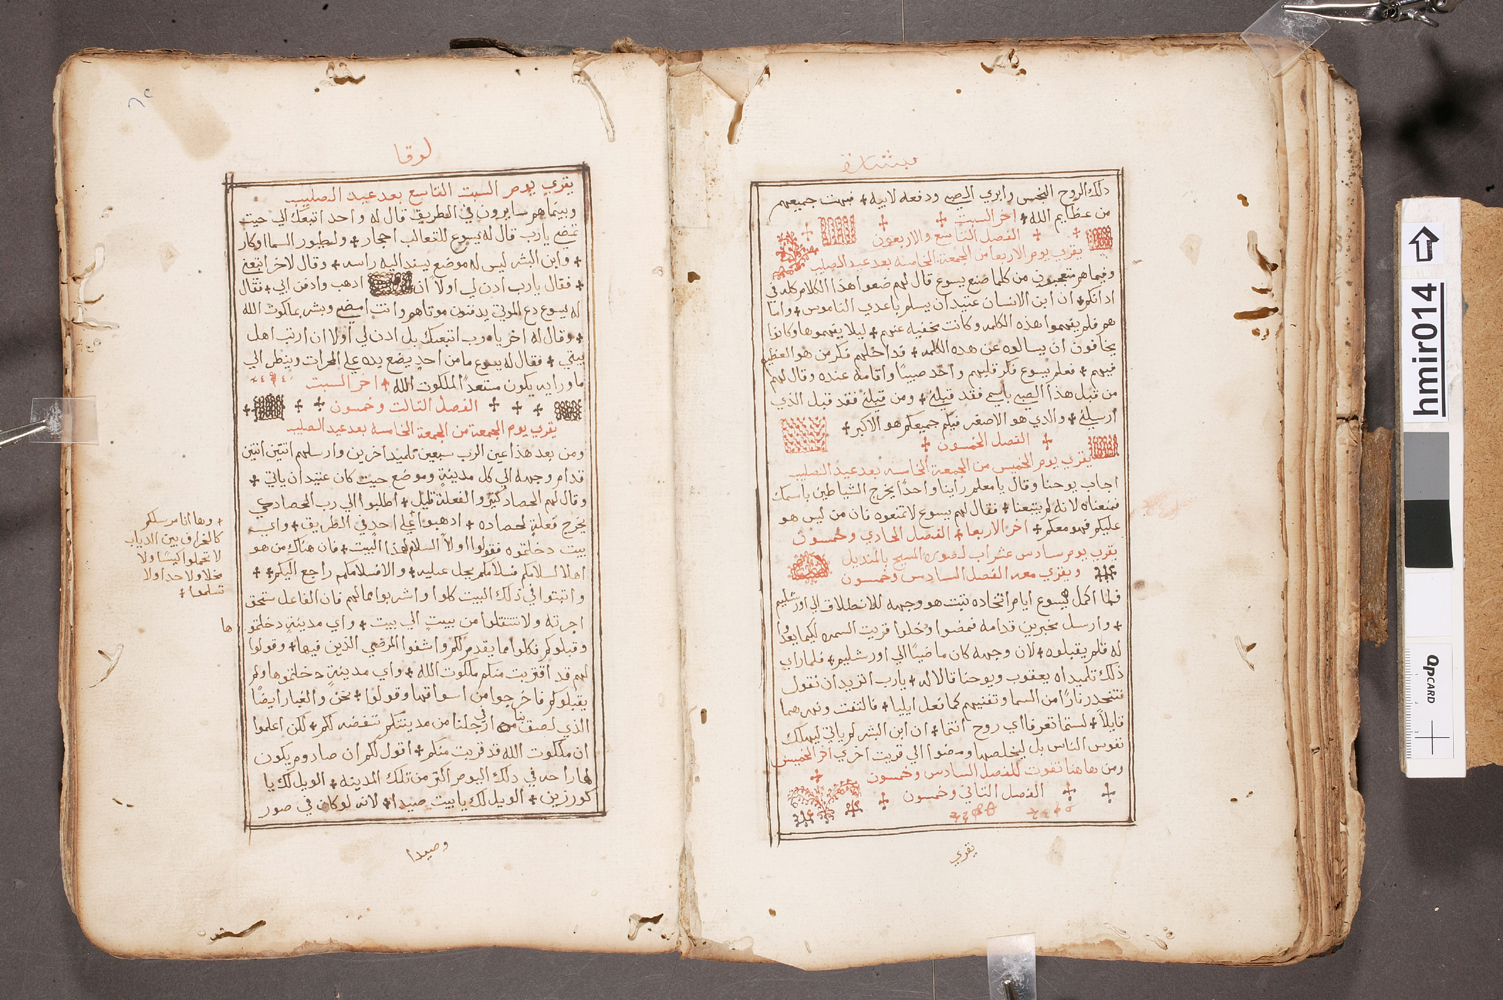 بشارة
ذلك الروح النجس وابري الصبي ودفعه لابيه + فبهت جميعهم
من عظايم الله + اخر السبت
الفصل التاسع والاربعون
يقري يوم الاربعا من الجمعة الخامسة بعد عيد الصليب
وفيما هم متعجبون من كلما صنع يسوع قال لهم ضعوا هذا الكلام كله في
اذانكم + ان ابن الانسان عتيد ان يسلم بايدي الناموس + واما
هم فلم يفهموا هذه الكلمه وكانت مخفيه عنهم + ليلا يفهموها وكانوا
يخافون ان يسالوه عن هذه الكلمه + فداخلهم فكر من هو العظيم
فيهم + فعلم يسوع فكر قلبهم واخذ صبيا واقامه عنده وقال لهم
من قبل هذا الصبي باسمي فقد قبلني + ومن قبلني فقد قبل الذي
ارسلني + والذي هو الاصغر فيكم جميعكم هو الاكبر +
الفصل الخمسون
يقرب يوم الخميس من الجمعة الخامسه بعد عيد الصليب
اجاب يوحنا وقال يا معلم راينا واحدا يخرج الشياطين باسمك
فمنعناه لانه لم يتبعنا + فقال لهم يسوع لا تمنعوه فان من ليس هو
عليكم فهو معكم + اخر الاربعا + الفصل الحادي وخمسون
يقرب يوم سادس عشر اب لصوره المسيح بالمنديل
ويقري معه الفصل السادس وخمسون
فلما اكمل يسوع ايام اتخاده ثبت هو وجهه للانطلاق الي اورشليم
+ وارسل مخبرين قدامه فمضوا ودخلوا قريت السمره لكيما يعدوا
له فلم يقبلوه + لان وجهه كان ماضيا الي اورشليم + فلما راي
ذلك تلميداه يعقوب ويوحنا قالا له + يارب اتريد ان نقول
فتنحدر نارا من السما وتفنيهم كما فعل ايليا + فالتفت ونهرهما
قايلا + لستما تعرفا اي روح انتما + ان ابن البشر لم ياتي ليهلك
نفوس الناس بل ليخلصها ومضوا الي قريت اخري اخر الخميس
ومن هاهنا تفوت للفصل السادس وخمسون
الفصل التاني وخمسون
يقري
لوقا
يقري يوم السبت التاسع بعد عيد الصليب
وبينما هم سايرون في الطريق قال له واحد اتبعك الي حيت
تمضي يارب قال له يسوع للتعالب احجار + ولطيور السما اوكار
+ وابن البشر ليس له موضع يسند اليه راسه + وقال لاخر اتبعني
+ فقال يارب ادن لي اولا ان ادهب وادفن ابي + فقال
له يسوع دع الموتي يدفنون موتاهم وانت امضي وبشر بملكوت الله
+ وقال له اخر يارب اتبعك بل ادن لي اولا ان ارتب اهل
بيتي + فقال له يسوع ما من احد يضع يده علي المحرات وينظر الي
ماورايه يكون مستعدا لملكوت الله + اخر السبت
الفصل التالت وخمسون
يقرب يوم الجمعة من الجمعة الخامسة بعد عيد الصليب
ومن بعد هذا عين الرب سبعين تلميد اخرين وارسلهم اتنين اتنين
قدام وجهه الي كل مدينة وموضع حيت كان عتيد ان ياتي +
وقال لهم الحصاد كثير والفعلة قليل + اطلبوا الي رب الحصاد كي
يخرج فعلة لحصاده + ادهبوا علي احد في الطريق + واي
بيت دخلتموه فقولوا اولا السلام لهذا البيت + فان هناك من هو
اهلا لسلامكم فسلامكم يحل عليه + والا فسلامكم راجع اليكم + +
واتبتوا في ذلك البيت كلوا واشربوا مما لهم فان الفاعل ستحق
اجرته ولا تنتقلوا من بيت الي بيت + واي مدينة دخلتموها
وقبلوكم فكلوا مما يقدم لكم واشفوا المرضي الذين فيها + وقولوا
لهم قد اقتربت منكم ملكوت الله + واي مدينة دخلتموها ولم
يقبلوكم فاخرجوا من اسواقها وقولوا + نحن والغبار ايضا
الذي لصق بنا في ارجلنا من مدينتكم ننفضه لكم + لكن اعلموا
ان ملكوت الله قد قربت منكم + اقول لكم ان صادوم يكون
لها راحه في ذلك اليوم اكتر من تلك المدينه + الويل لك يا
كورزين + الويل لك يا بيت صيدا + لانه لو كان في صور
+ وها انا مرسلكم
كالخراف بين الدياب
لا تحملوا كيسا ولا
مخلا ولا حدا ولا
تسلموا +
وصيدا
hmir014
QPCARD